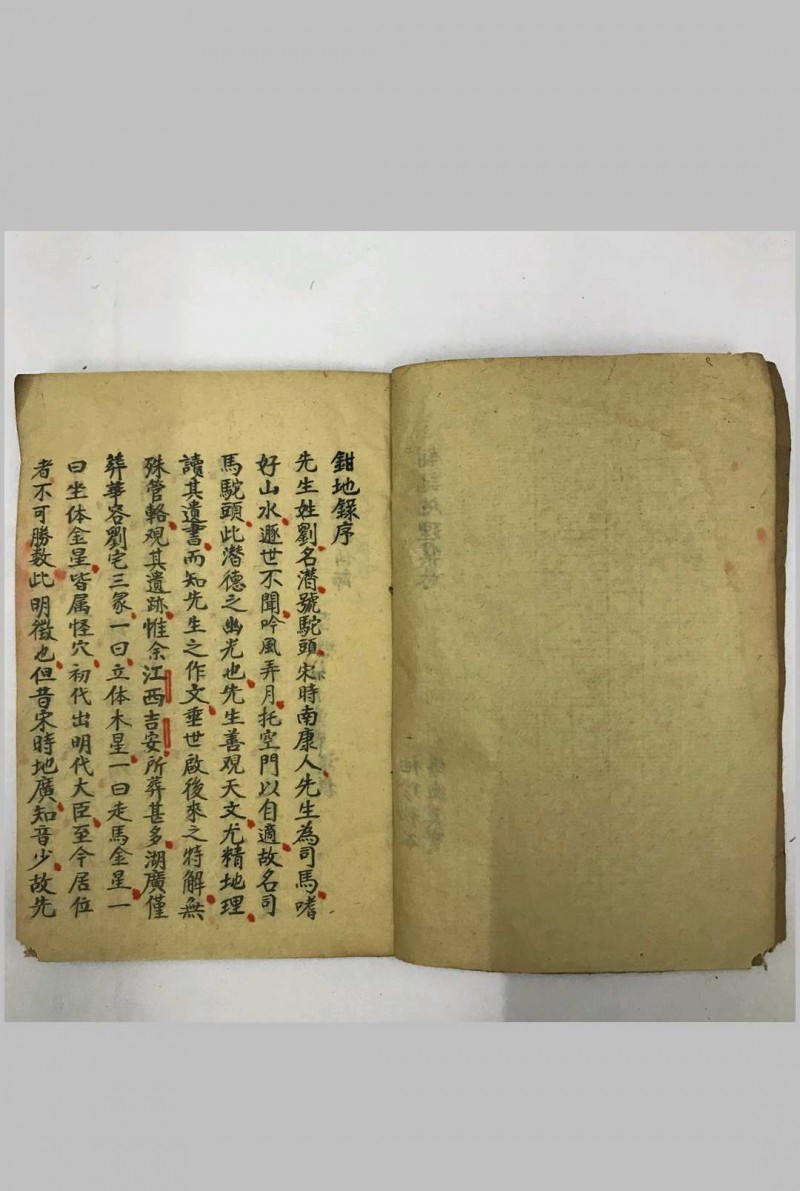 鉗地錄序
先生姓劉名潛號駝頭宋時南康人先生為司馬嗜
好山水遯世不聞吟風弄月托空門以自適故名司
馬駝頭此潛德之幽光也先生善觀天文尤精地理
讀其遺書而知先生之作文垂世啟後來之特解無
殊管輅觀其遺跡惟余江西吉安所葬甚多湖廣僅
葬華容劉宅三冢一曰立体木星一曰走馬金星一
曰坐体金星皆属怪穴初代出明代大臣至今居位
者不可勝数此明徵也但昔宋時地廣知音少故先